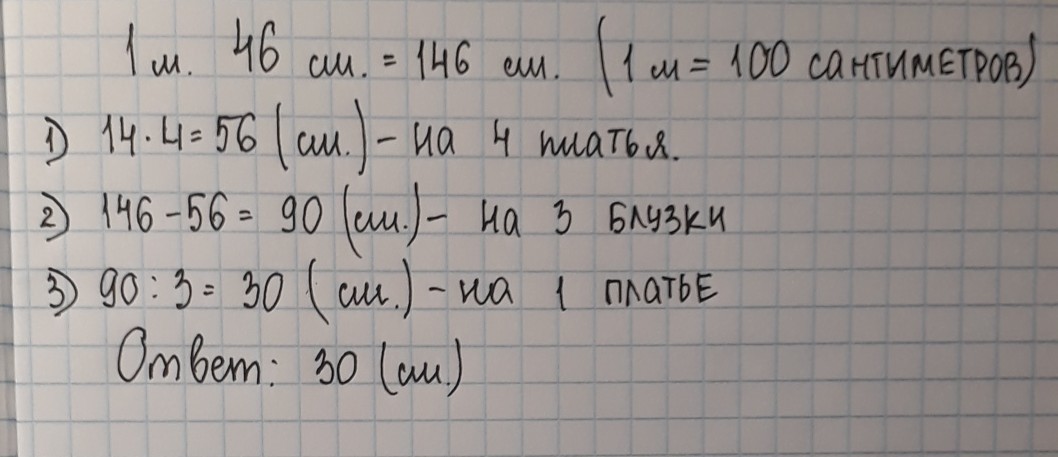 1 м. 46 см. = 146 см. (1 м = 100 САНТИМЕТРОВ)
1) 14 · 4 = 56 (см.) – на 4 платья.
2) 146 – 56 = 90 (см.) – на 3 БЛУЗКИ
3) 90 : 3 = 30 (см.) – на 1 ПЛАТЬЕ
Ответ: 30 (см.)